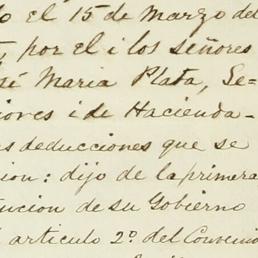 o el 15 de Marzo del
, por el i los señores
sé Maria Plata, Se-
iores i de Hacienda-
as deducciones que se
cion: dijo de la primera
tucion de su Gobierno
l articulo 2º. del Convenio